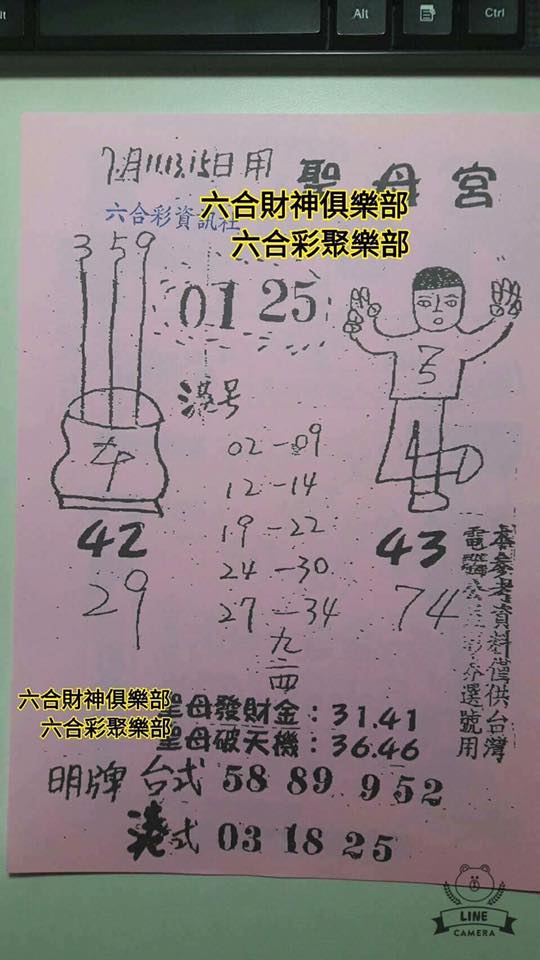 Alt
Ctrl
7月11.13.15日用
聖母宮
六合彩資訊社
六合財神俱樂部
六合彩聚樂部
3 5 9
01 25
7
5
港号
02-09
12-14
19-22
24-30
27-34
九二四
42
29
43
74
本參考資料僅供台灣
選號用
六合財神俱樂部
六合彩聚樂部
聖母發財金:31.41
聖母破天機:36.46
明牌 台式 58 89 952
港式 03 18 25
LINE
CAMERA